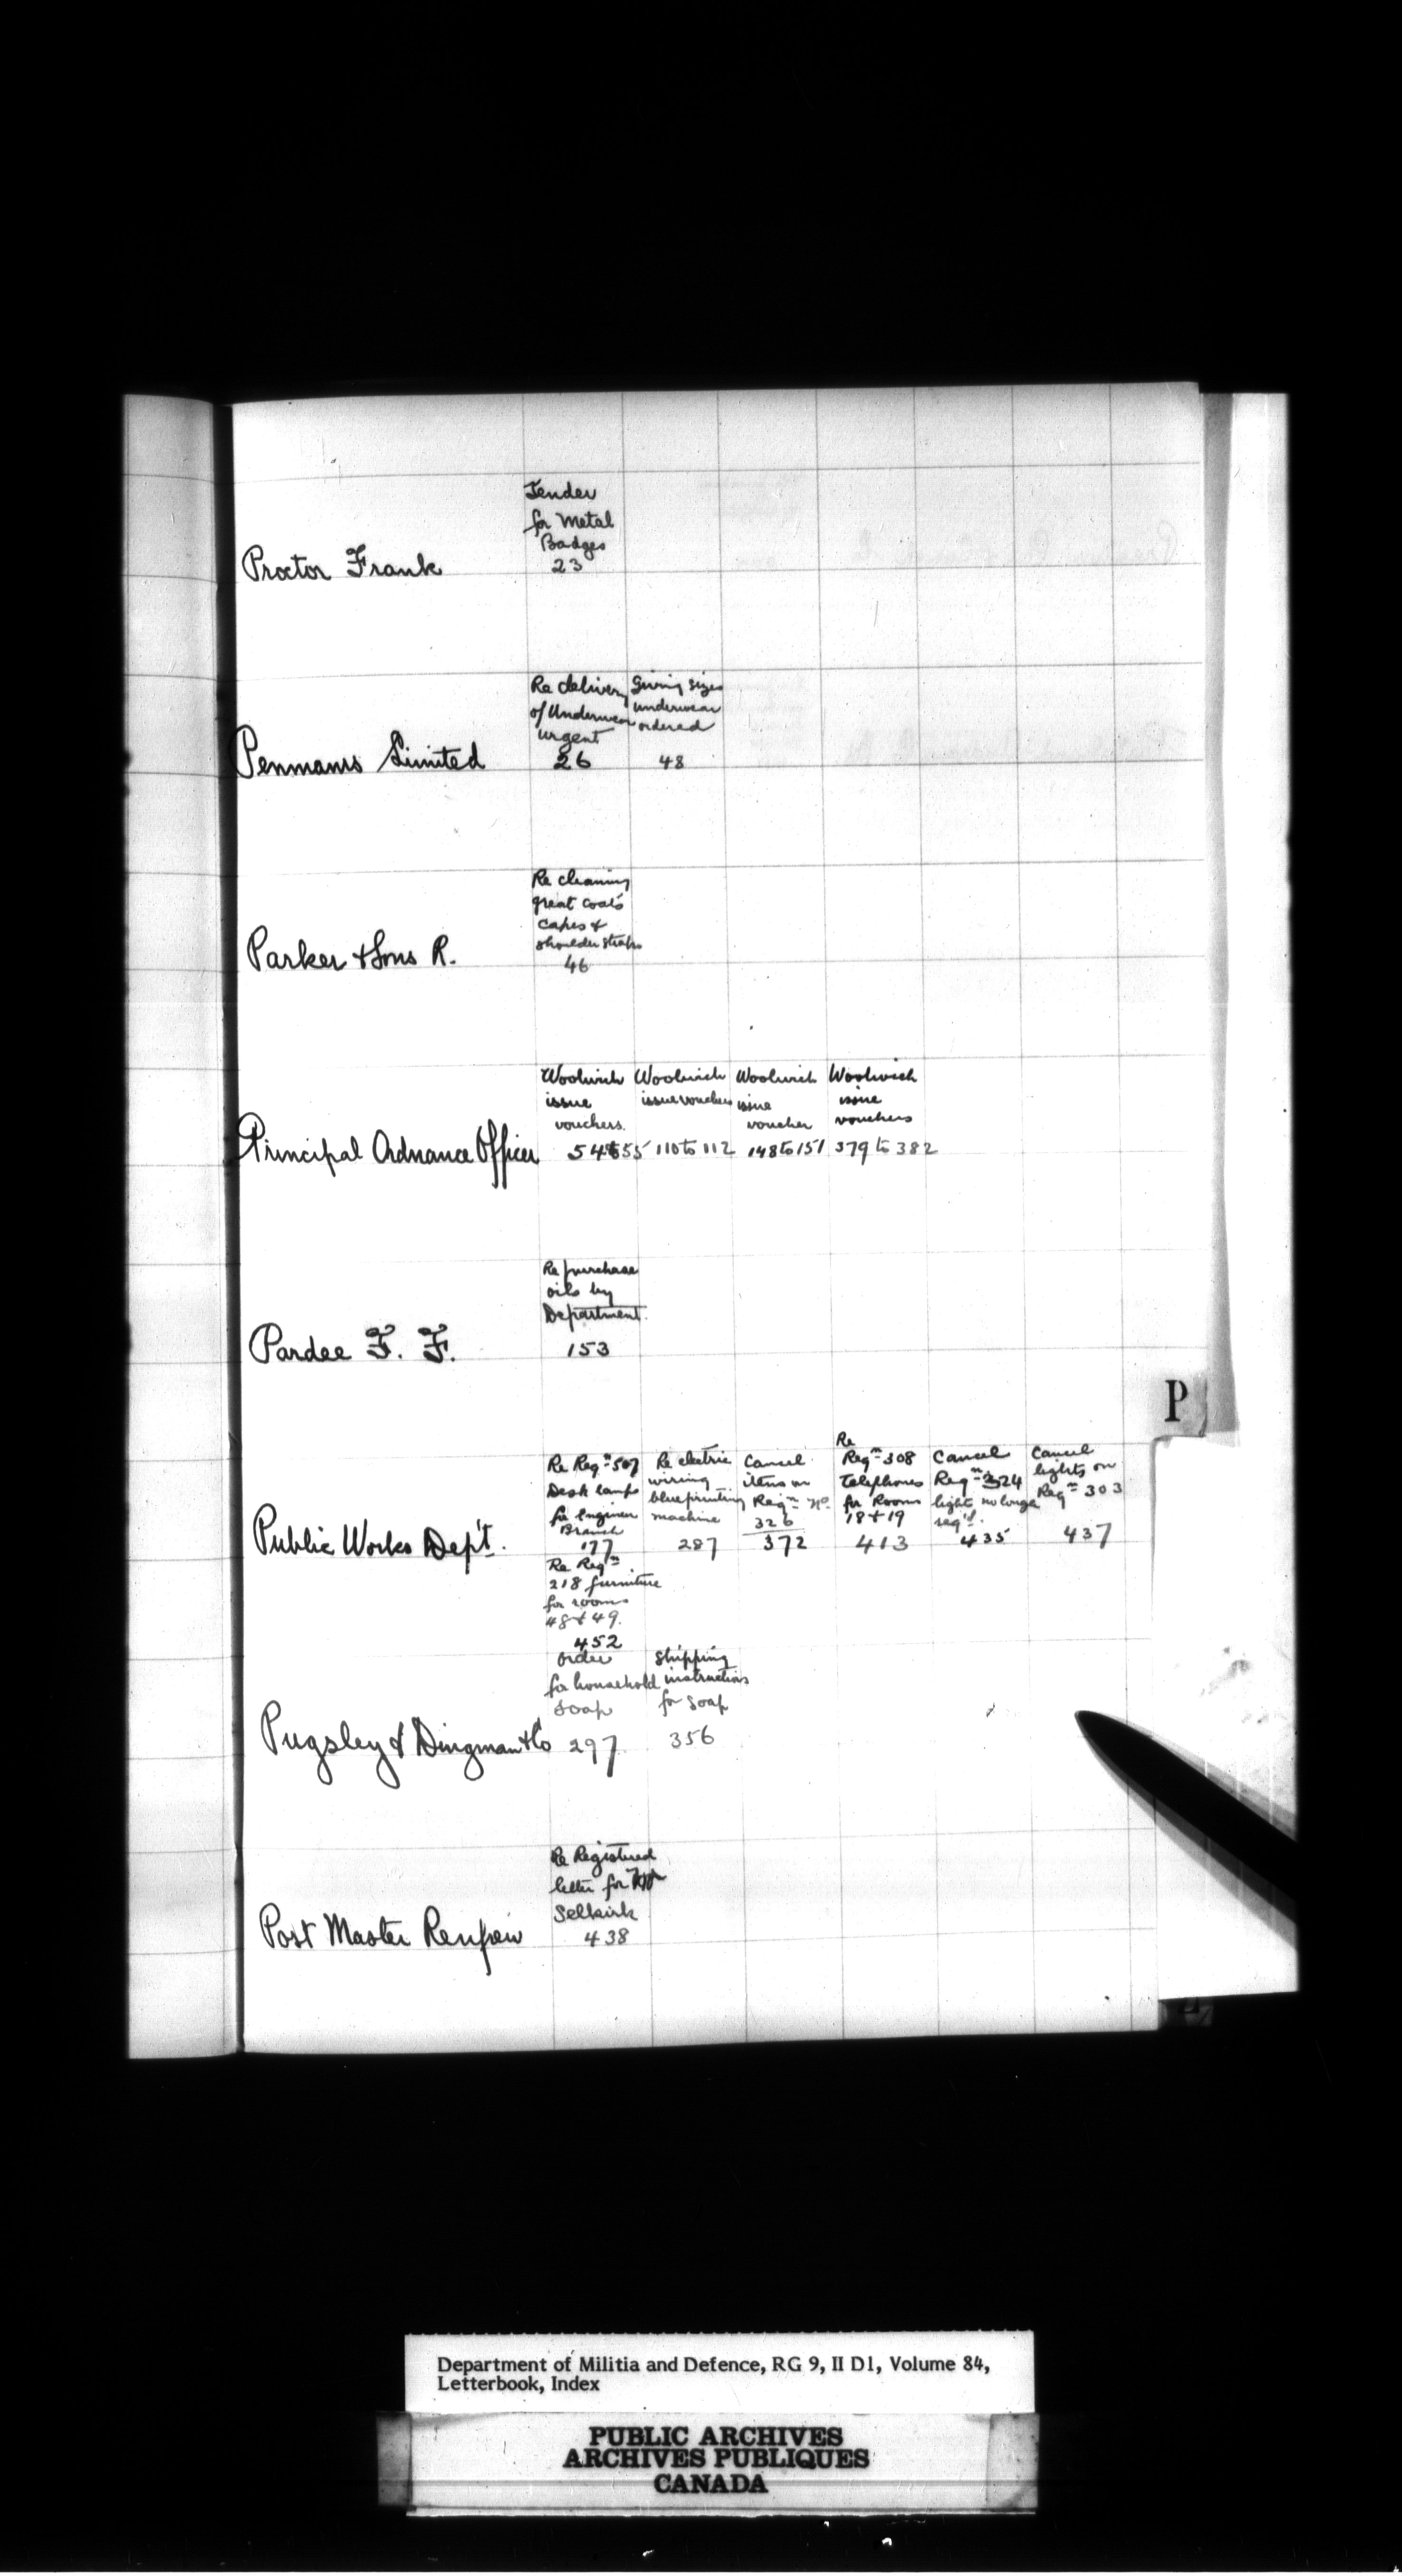 Tender
for Metal
Badges
Proctor Frank 23
Re delivery
of Underwear
urgent
Giving sizes
underwear
ordered
Penmans Limited 26 48
Re cleaning
great coats
capes &
shoulder straps
Parker & Sons R. 46
Woolwich
issue
vouchers.
Woolwich
issue vouchers
Woolwich
issue
voucher
Woolwich
issue
vouchers
Principal Ordnance Officer 54 to 55 110 to 112 148 to 151 379 to 382
Re purchase
oils by
Department.
Pardee F. F. 153
P
Re Reqn 507
Desk lamps
for Engineer
Branch
Re electric
wiring
blueprinting
machine
Cancel
items on
Reqn No.
326
Re
Reqn 308
Telephones
for Rooms
18 & 19
Cancel
Reqn 324
light no longer
req'd.
Cancel
lights on
Reqn 303
Public Works Dep't. 177 287 372 413 435 437
Re Reqn
218 furniture
for rooms
48 & 49.
452
Order
for household
soap
Shipping
instructions
for soap
Pugsley & Dingman & Co 297 356
Re Registered
letter for
Selkirk
Post Master Renfrew 438
Department of Militia and Defence, RG 9, II D1, Volume 84,
Letterbook, Index
PUBLIC ARCHIVES
ARCHIVES PUBLIQUES
CANADA